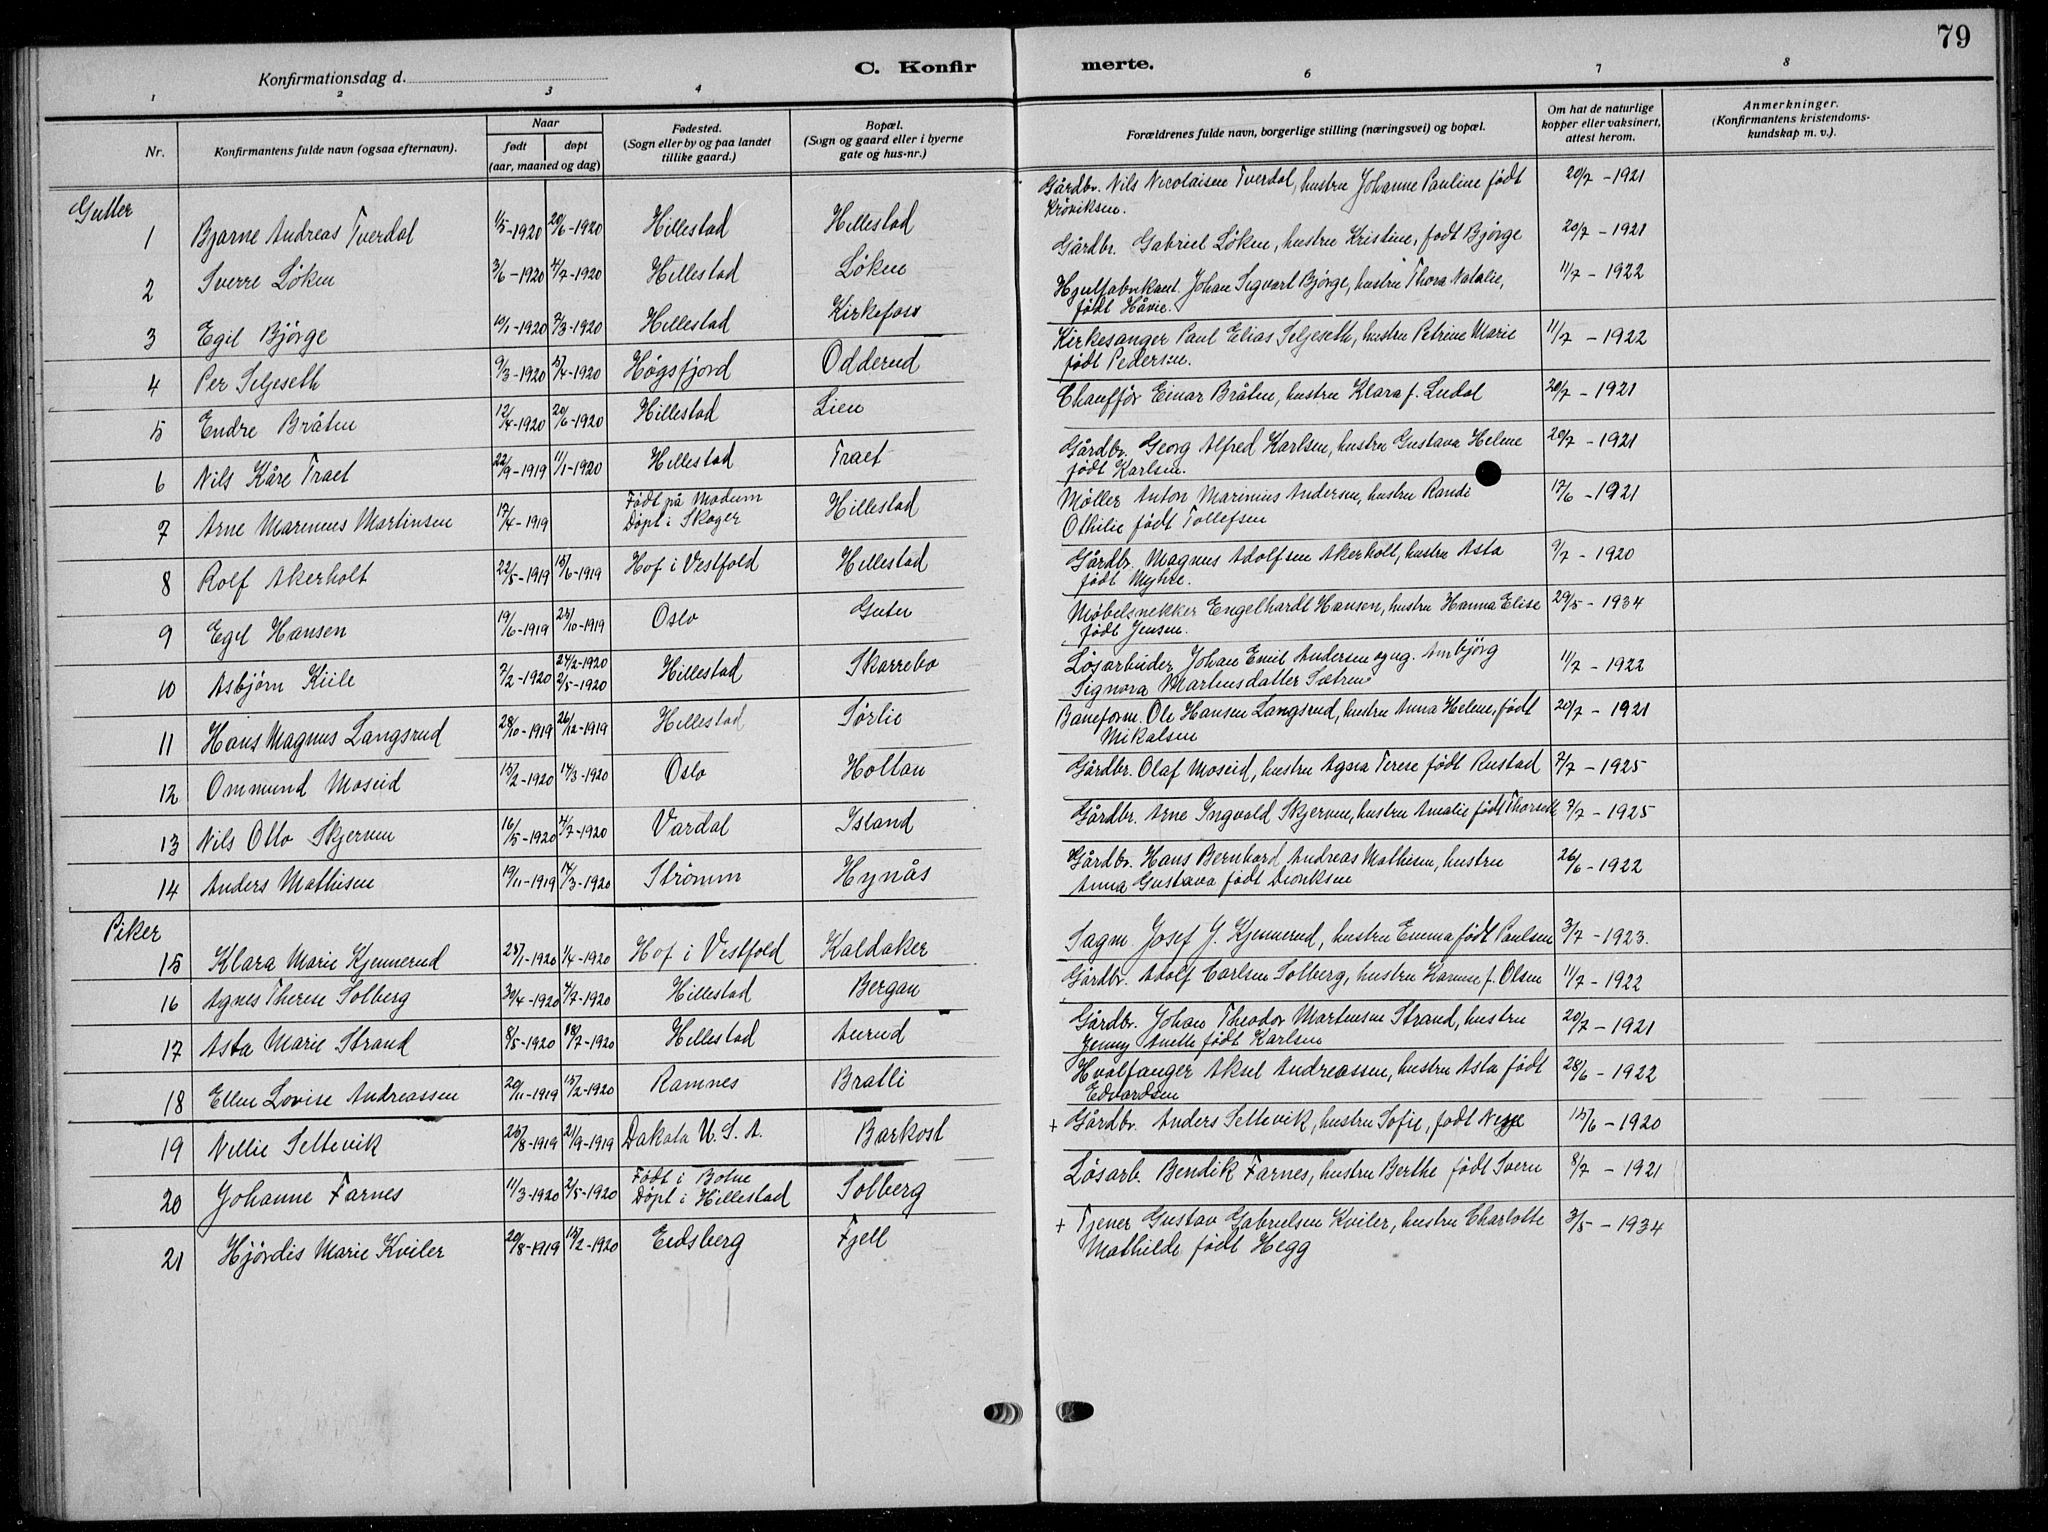 79
Konfirmationsdag d.
C. Konfirmerte.
1 2 3 4 6 7 8
Nr. Konfirmantens fulde navn (ogsaa efternavn). Naar født døpt (aar, maaned og dag) Fødested. (Sogn eller by og paa landet tillike gaard.) Bopæl. (Sogn og gaard eller i byerne gate og hus-nr.) Forældrenes fulde navn, borgerlige stilling (næringsvei) og bopæl. Om hat de naturlige kopper eller vaksinert, attest herom. Anmerkninger. (Konfirmantens kristendomskundskap m. v.).
Gutter
1 Bjarne Andreas Tverdal 1/5-1920 20/6-1920 Hillestad Hillestad Gårdbr. Nils Nicolaisen Tverdal, hustru Johanne Pauline født 20/7 - 1921
Kröviksen.
2 Sverre Löken 3/6-1920 4/7-1920 Hillestad Löken Gårdbr. Gabriel Löken, hustru Kristine, født Bjørge 20/7 - 1921
3 Egil Bjørge 10/1-1920 7/3-1920 Hillestad Kirkefoss Hjulfabrikant Johan Sigvart Bjørge, hustru Thora Natalie, 11/7 - 1922
født Håvie.
4 Per Seljeseth 9/3-1920 5/4-1920 Høgsfjord Odderud Kirkesanger Paul Elias Seljeseth, hustru Petrine Marie 11/7 - 1922
født Pedersen.
5 Endre Bråten 12/4-1920 20/6-1920 Hillestad Lien Chauffør Einar Bråten, hustru Klara f. Ludal 20/7 - 1921
6 Nils Kåre Traet 22/9-1919 11/1-1920 Hillestad Traet Gårdbr. Georg Alfred Karlsen, hustru Gustava Helene 20/7 - 1921
født Karlsen.
7 Arne Marenius Martinsen 17/4-1919 Født på Modum Hillestad Møller Anton Marinius Andersen, hustru Randi 17/6 - 1921
Døpt i Skoger Othilie født Tollefsen
8 Rolf Akerholt 22/5-1919 15/6-1919 Hof i Vestfold Hillestad Gårdbr. Magnus Adolfsen Akerholt, hustru Asta 9/7 - 1920
født Myhre.
9 Egil Hansen 19/6-1919 25/10-1919 Oslo Guten Møbelsnekker Engelhardt Hansen, hustru Hanna Elise 29/5 - 1934
født Jensen.
10 Asbjørn Kiile 7/2-1920 24/2-1920 2/5-1920 Hillestad Skarrebo Løsarbeider Johan Emil Andersen og ug. Ambjørg 11/7 - 1922
Signora Martinsdatter Sætren
11 Hans Magnus Langsrud 28/10-1919 26/12-1919 Hillestad Sørlie Baneform. Ole Hansen Langsrud, hustru Anna Helene, født 20/7 - 1921
Mikalsen
12 Ommund Moseid 15/2-1920 14/3-1920 Oslo Holtan Gårdbr. Olaf Moseid, hustru Agnea Terese født Rustad 7/7 - 1925
13 Nils Otto Skjerven 16/5-1920 4/7-1920 Vardal Island Gårdbr. Arne Ingvald Skjerven, hustru Amalie født Thorseth 7/7 - 1925
14 Anders Mathisen 19/11-1919 14/3-1920 Strømm Hynås Gårdbr. Hans Bernhard Andreas Mathisen, hustru 26/6 - 1922
Anna Gustava født Dionksen
Piker
15 Klara Marie Kjennerud 25/1-1920 1/4-1920 Hof i Vestfold Kaldaker Sagm. Josef J. Kjennerud, hustru Emma født Paulsen 3/7 - 1923.
16 Agnes Therese Solberg 30/4-1920 4/7-1920 Hillestad Bergan Gårdbr. Adolf Carlsen Solberg, hustru Hanna f. Olsen 11/7 - 1922
17 Asta Marie Strand 8/5-1920 18/7-1920 Hillestad Aurud Gårdbr. Johan Theodor Martinsen Strand, hustru 20/7 - 1921
Jenny Anette født Karlsen
18 Ellen Lovise Andreassen 20/11-1919 15/2-1920 Ramnes Bratli Hvalfanger Aksel Andreassen, hustru Asta født 28/6 - 1922
Edvardsen
19 Nellie Settevik 25/8-1919 21/9-1919 Dakota U. S. A. Barkost + Gårdbr. Anders Settevik, hustru Sofie, født Neype 15/6 - 1920
20 Johanne Farnes 11/3-1920 2/5-1920 Født i Botne Solberg Løsarb. Bendik Farnes, hustru Berthe født Sveen 8/7 - 1921
Døpt i Hillestad
21 Hjørdis Marie Kviler 20/8-1919 15/2-1920 Eidsberg Fjell + Tjener Gustav Gabrielsen Kviler, hustru Charlotte 3/5 - 1934
Mathilde født Hegg